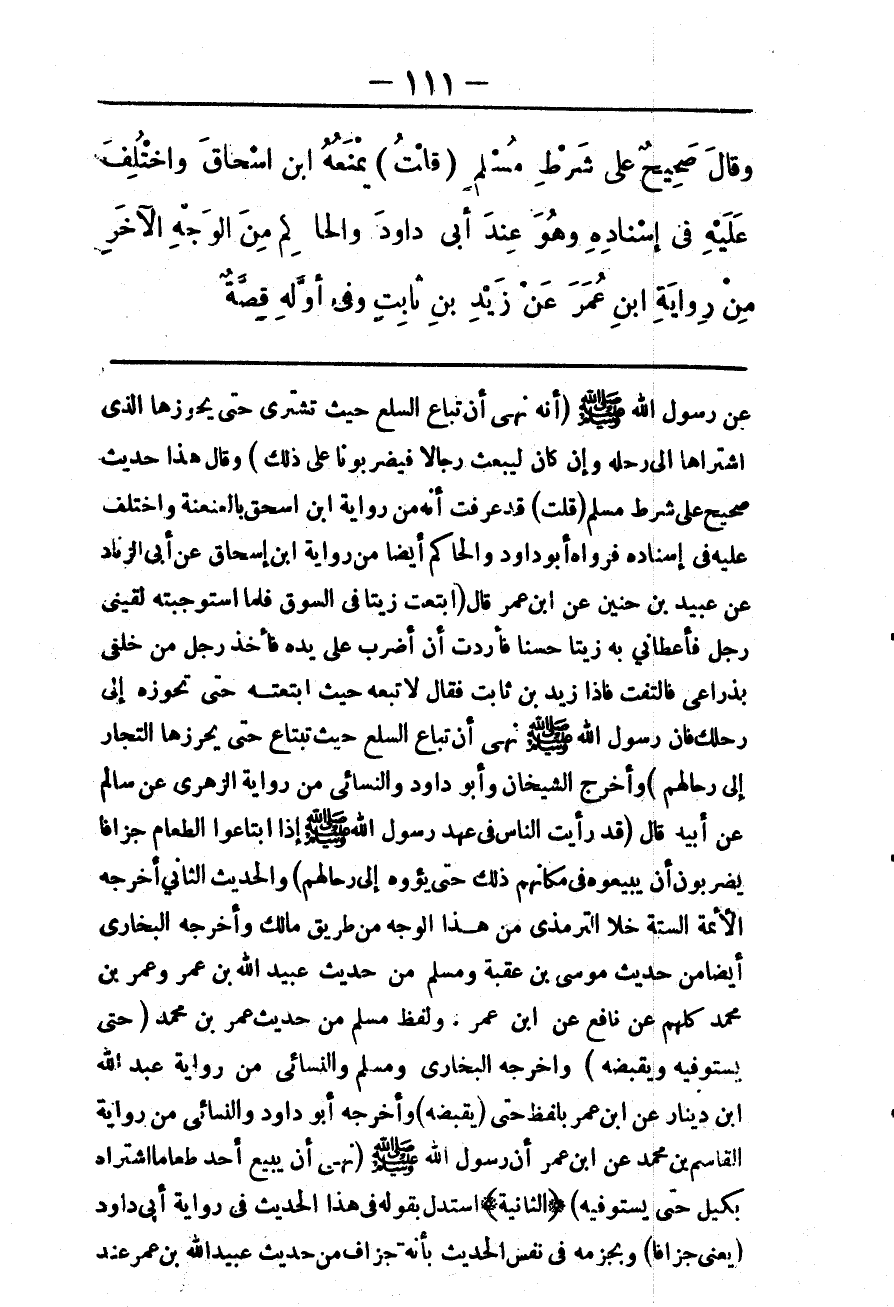 — ١١١ —
وقالَ صَحِيحٌ على شَرْطِ مُسْلمٍ (قلْتُ) يَمْنَعُهُ ابن اسْحاقَ واخْتُلِفَ
عَلَيْهِ فى إسْنادِهِ وهُوَ عِندَ أبى داودَ والحا كِمِ مِنَ الوَجْهِ الآخَرِ
مِنْ رِوايَةِ ابنِ عُمَرَ عَنْ زَيْدِ بنِ ثابِتٍ وفى أوَّلهِ قِصَّةٌ
عن رسول الله ﷺ (أنه نهى أن تباع السلع حيث تشترى حتى يحوزها الذى
اشتراها الى رحله وإن كان ليبعث رجالا فيضربونا على ذلك ) وقال هذا حديث
صحيح على شرط مسلم (قلت) قد عرفت أنه من رواية ابن اسحق بالعنعنة واختلف
عليه فى إسناده فرواه أبو داود والحاكم أيضا من رواية ابن إسحاق عن أبى الزناد
عن عبيد بن حنين عن ابن عمر قال (ابتعت زيتا فى السوق فلما استوجبته لقينى
رجل فأعطانى به زيتا حسنا فأردت أن أضرب على يده فأخذ رجل من خلفى
بذراعى فالتفت فاذا زيد بن ثابت فقال لا تبعه حيث ابتعتـه حتى تحوزه إلى
رحلك فان رسول الله ﷺ نهى أن تباع السلع حيث تبتاع حتى يحرزها التجار
إلى رحالهم ) وأخرج الشيخان وأبو داود والنسائى من رواية الزهرى عن سالم
عن أبيه قال (قد رأيت الناس فى عهد رسول الله ﷺ إذا ابتاعوا الطعام جزافا
يضربون أن يبيعوه فى مكانهم ذلك حتى يؤوه إلى رحالهم) والحديث الثانى أخرجه
الأئمة الستة خلا الترمذى من هـذا الوجه من طريق مالك وأخرجه البخارى
أيضا من حديث موسى بن عقبة ومسلم من حديث عبيد الله بن عمر وعمر بن
محمد كلهم عن نافع عن ابن عمر . ولفظ مسلم من حديث عمر بن محمد ( حتى
يستوفيه ويقبضه ) واخرجه البخارى ومسلم والنسائى من رواية عبد الله
ابن دينار عن ابن عمر بلفظ حتى (يقبضه) وأخرجه أبو داود والنسائى من رواية
القاسم بن محمد عن ابن عمر أن رسول الله ﷺ (نهى أن يبيع أحد طعاما اشتراه
بكيل حتى يستوفيه) ﴿الثانية﴾ استدل بقوله فى هذا الحديث فى رواية أبى داود
(يعنى جزافا) وبجزمه فى نفس الحديث بأنه جزاف من حديث عبيد الله بن عمر عند